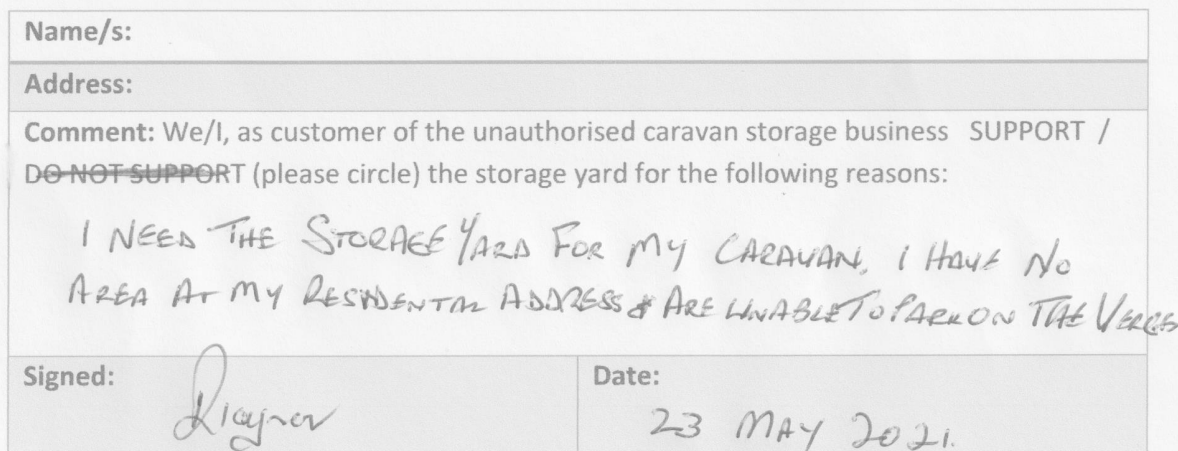 Name/s:
Address:
Comment: We/I, as customer of the unauthorised caravan storage business SUPPORT /
DO NOT SUPPORT (please circle) the storage yard for the following reasons:
I NEED THE STORAGE YARD FOR MY CARAVAN. I HAVE NO
AREA AT MY RESIDENTAL ADDRESS & ARE UNABLE TO PARK ON THE VERGE
Signed: Date:
23 MAY 2021.